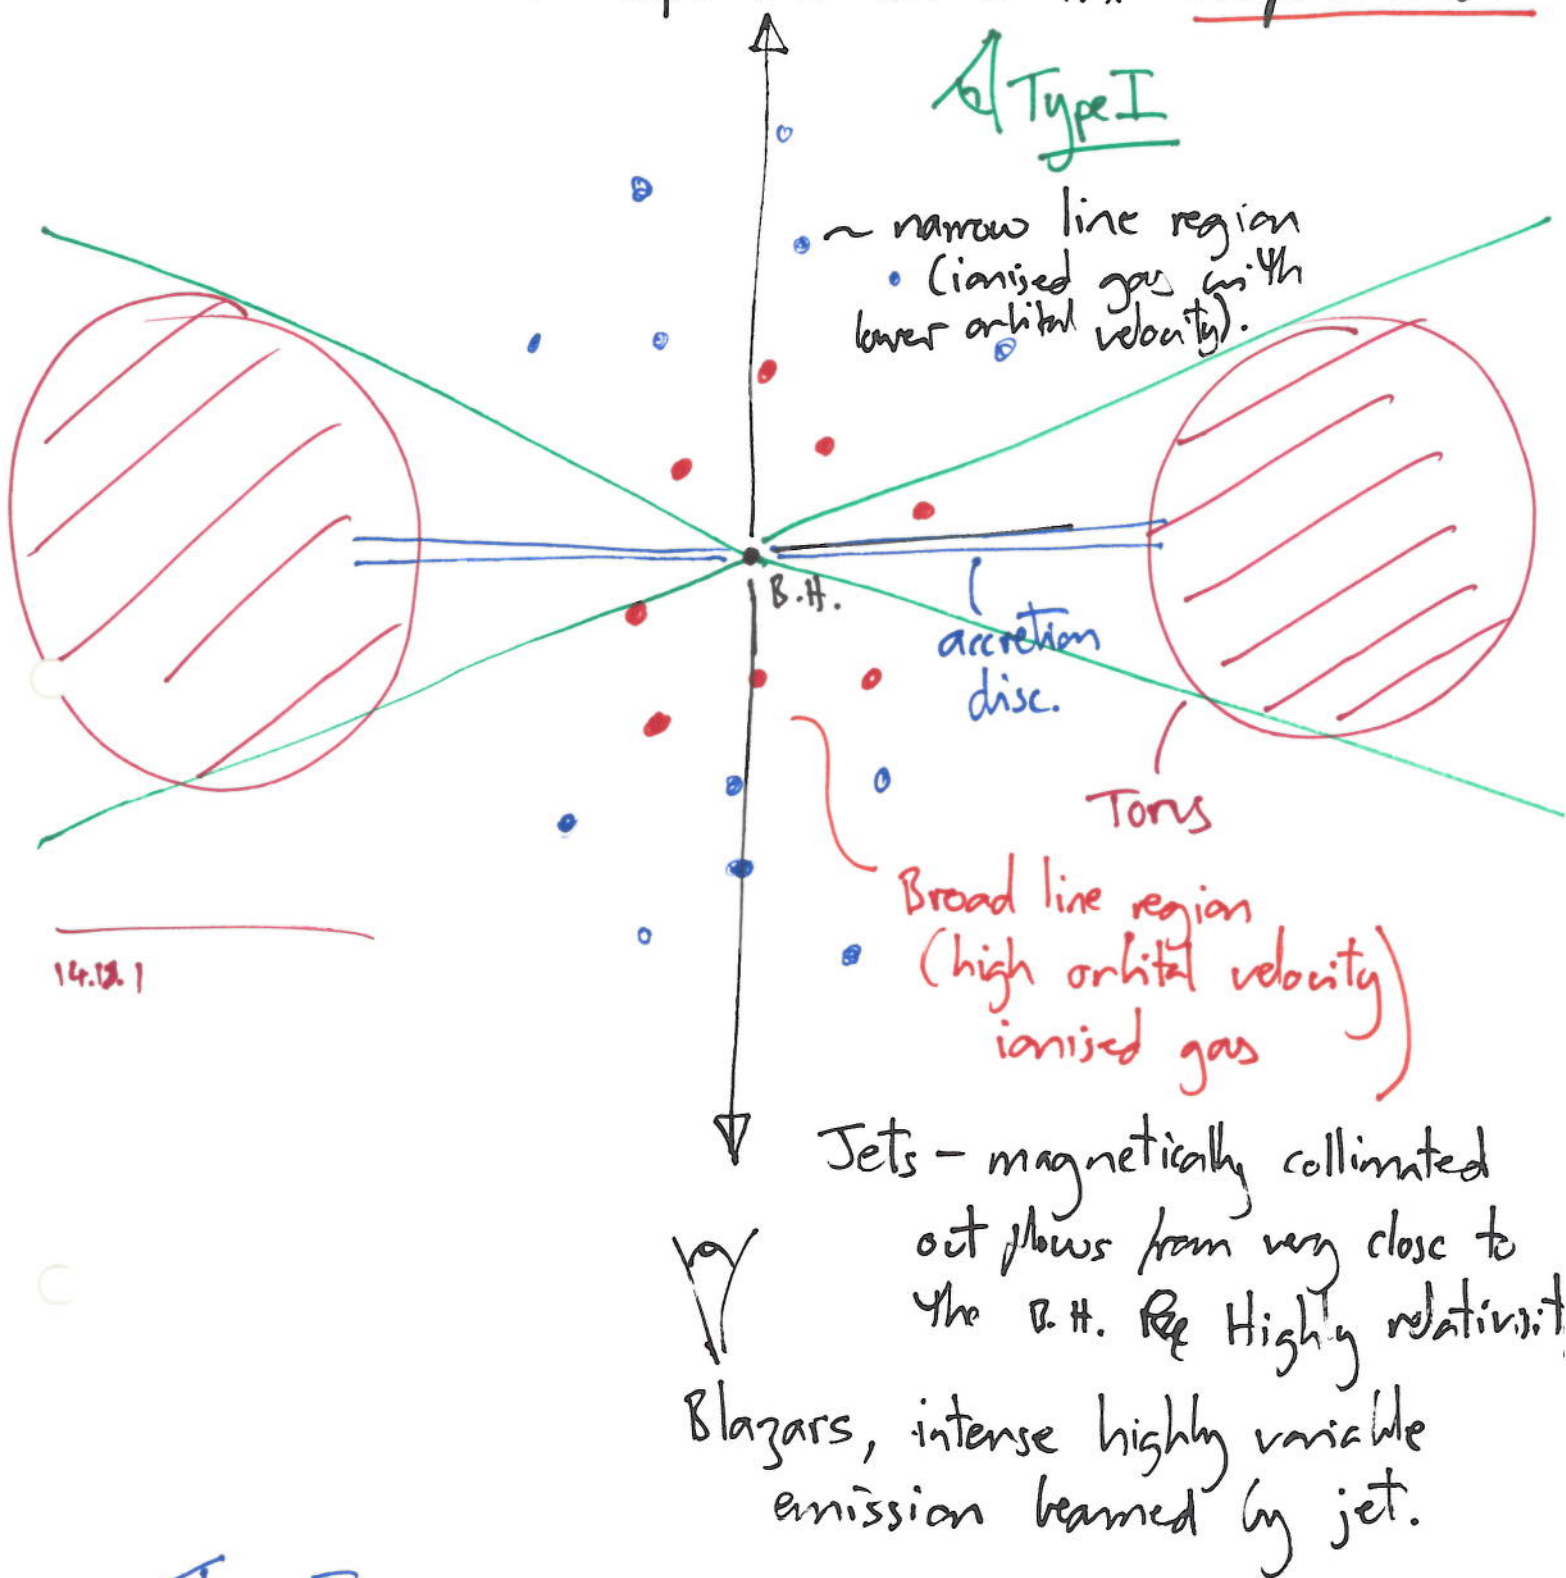 Type I
~ narrow line region
(ionised gas with
lower orbital velocity).
B.H.
accretion
disc.
Torus
Broad line region
(high orbital velocity)
ionised gas
14.12.1
Jets - magnetically collimated
out flows from very close to
the B.H. Highly relativisit
Blazars, intense highly variable
emission beamed by jet.